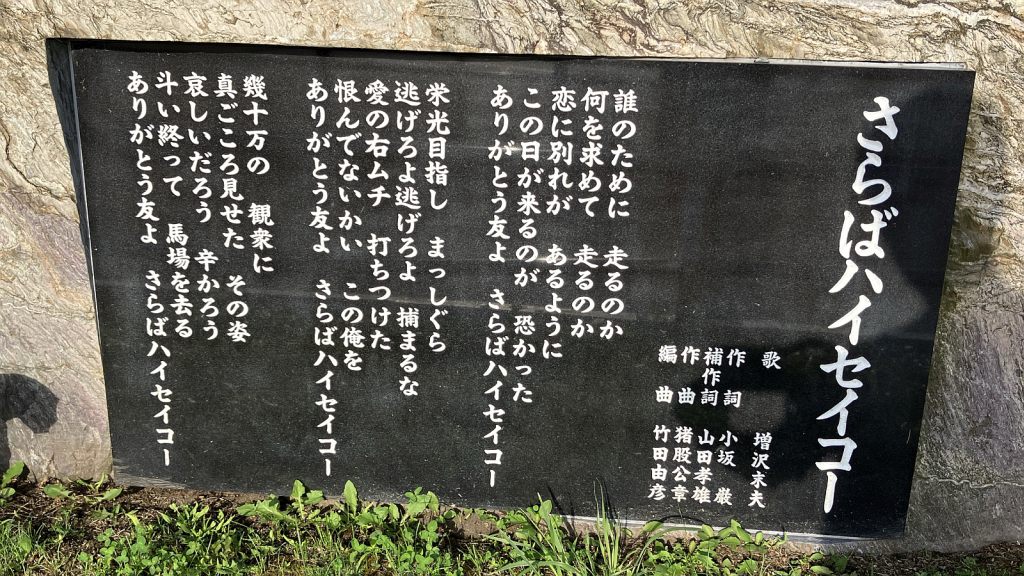 さらばハイセイコー
歌　増沢末夫
作詞　小坂　巌
補作詞　山田孝雄
作曲　猪股公章
編曲　竹田由彦
誰のために　走るのか
何を求めて　走るのか
恋に別れが　あるように
この日が来るのが　恐かった
ありがとう友よ　さらばハイセイコー
栄光目指し　まっしぐら
逃げろよ逃げろよ　捕まるな
愛の右ムチ　打ちつけた
恨んでないかい　この俺を
ありがとう友よ　さらばハイセイコー
幾十万の　観衆に
真ごころ見せた　その姿
哀しいだろう　辛かろう
斗い終って　馬場を去る
ありがとう友よ　さらばハイセイコー